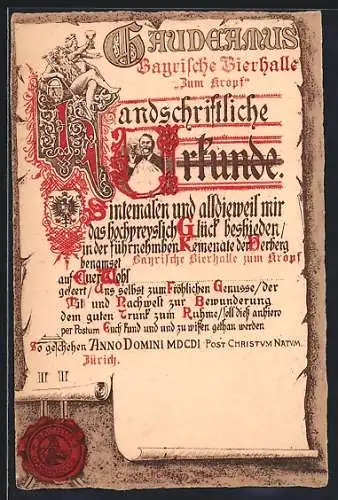 Gaudeamus
Bayrische Bierhalle
„Zum Kropf"
Handschriftliche
Urkunde.
Sintemalen und alldieweil mir
das hochpreyslich Glück beschieden/
in der führnehmben Kemenate der Herberg
benamset Bayrische Bierhalle zum Kropf
auf Euer Wohl
geleert/ Uns selbst zum Fröhlichen Genusse/ der
Mit und Nachwelt zur Bewunderung
dem guten Trunk zum Ruhme/ soll dieß anhiero
per Postum Euch kund und und zu wissen gethan werden
So geschehen ANNO DOMINI MDCDI POST CHRISTUM NATUM.
Zürich.